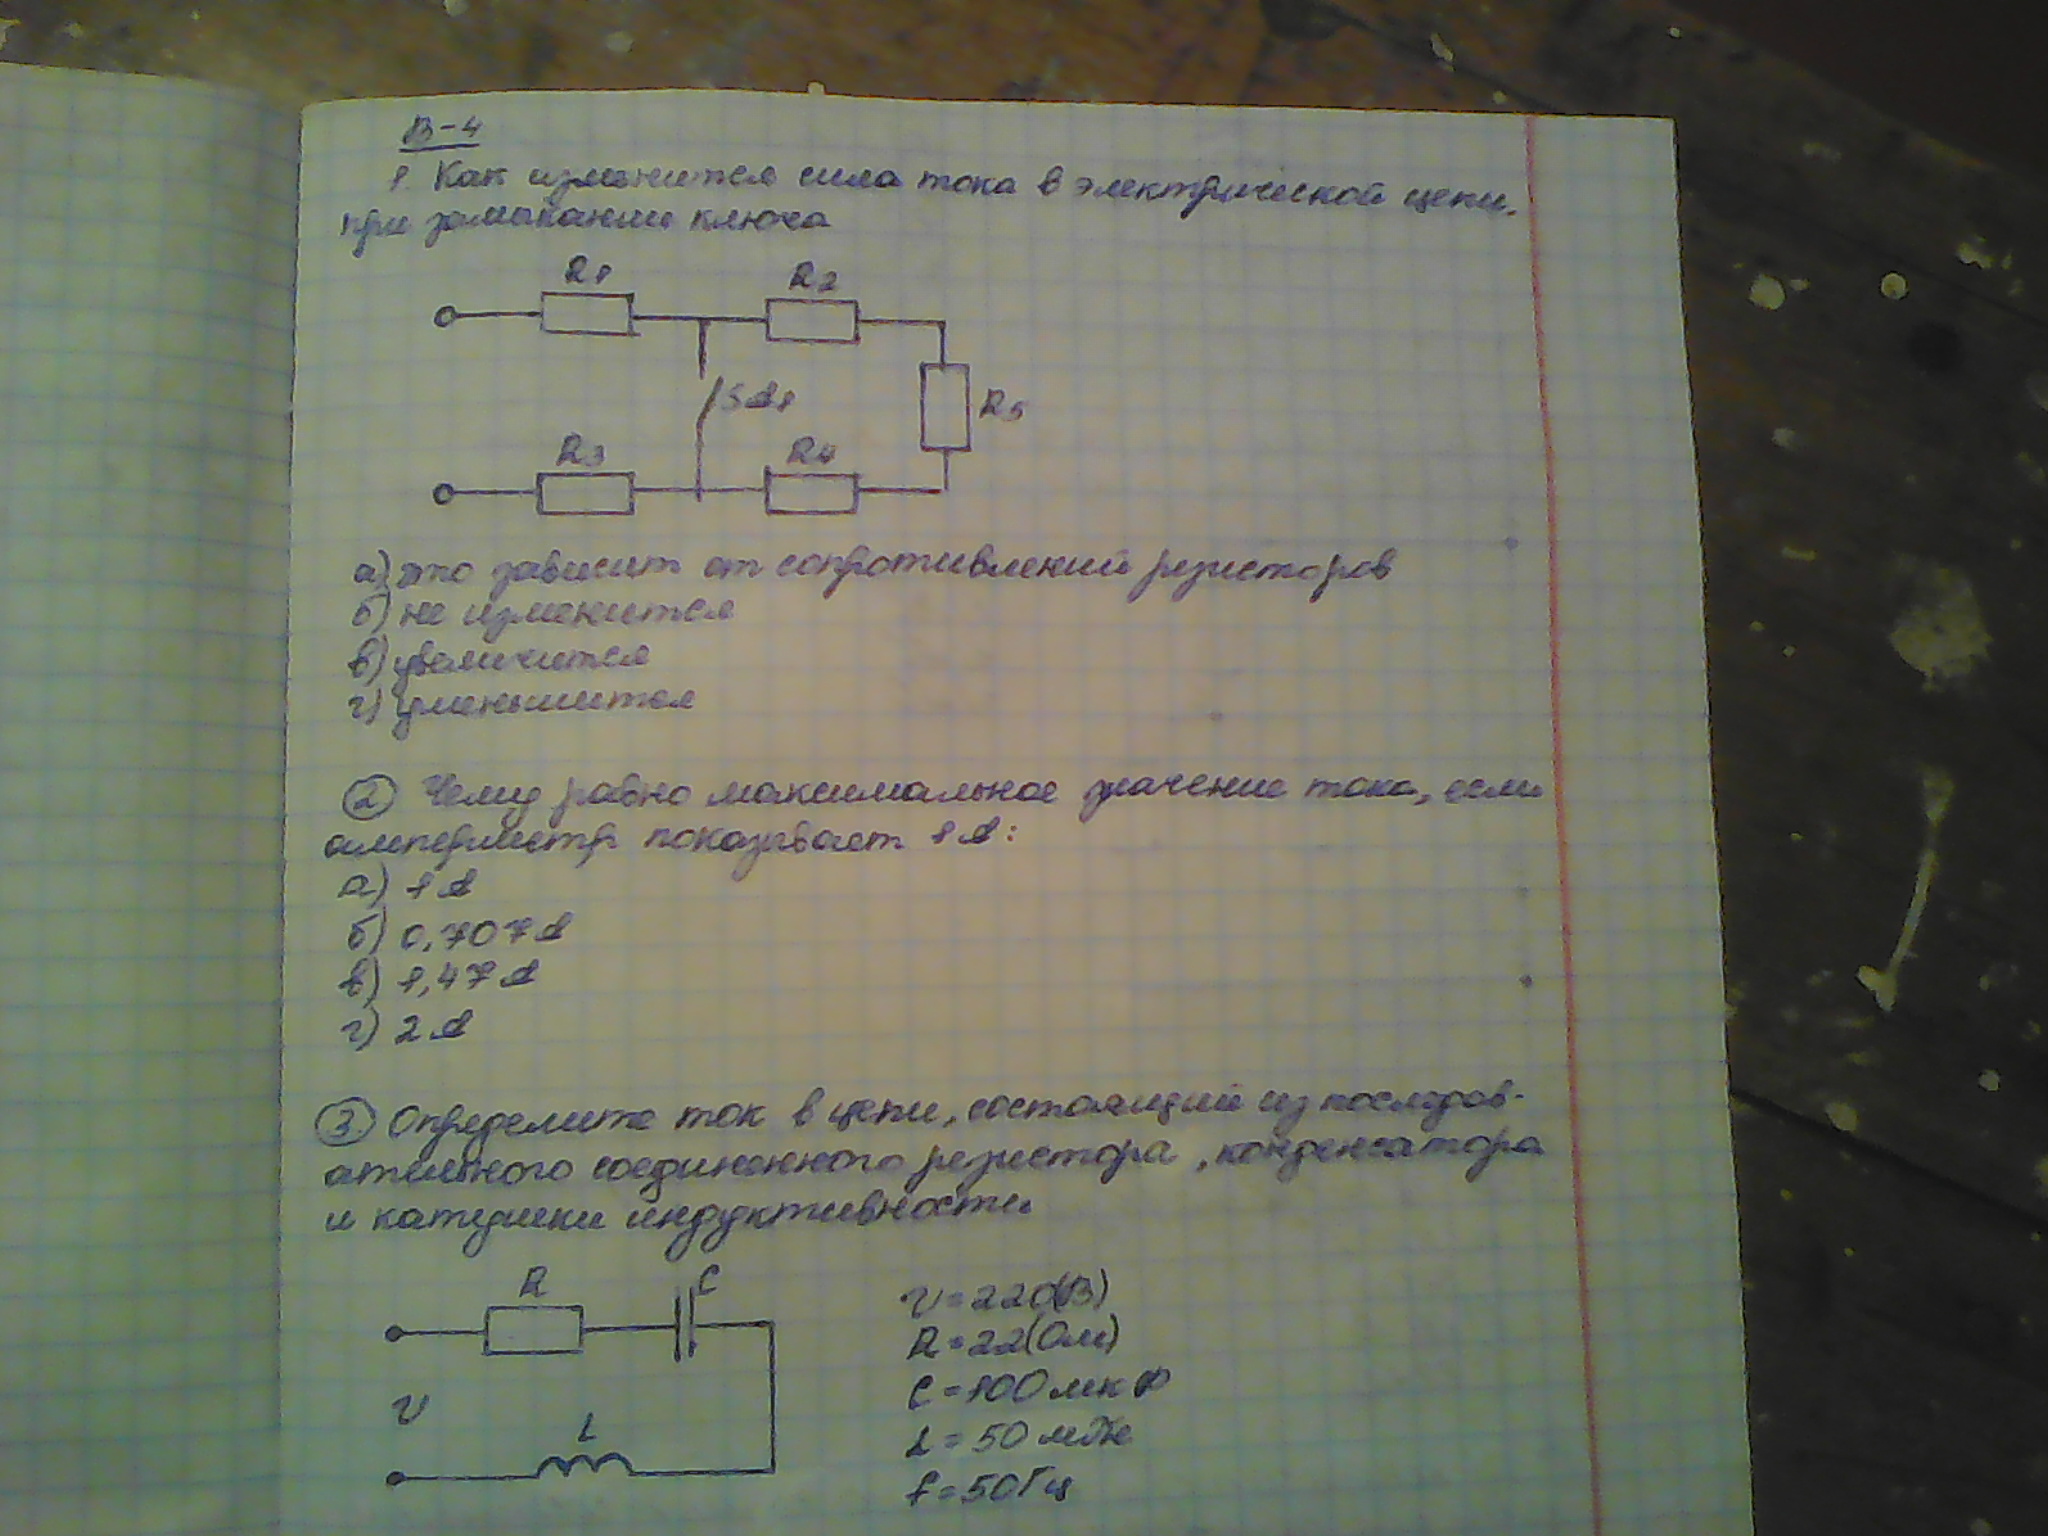 В-4
1. Как изменится сила тока в электрической цепи,
при замыкании ключа
R1
R2
SA1
R5
R3
R4
а) это зависит от сопротивлений резисторов
б) не изменится
в) увеличится
г) уменьшится
2 Чему равно максимальное значение тока, если
амперметр показывает 1А:
а) 1А
б) 0,707А
в) 1,47А
г) 2А
3. Определите ток в цепи, состоящий из последов-
ательного соединенного резистора, конденсатора
и катушки индуктивности.
R
C
U
L
U=220(В)
R=22(Ом)
C=100мкФ
L=50мГн
f=50Гц